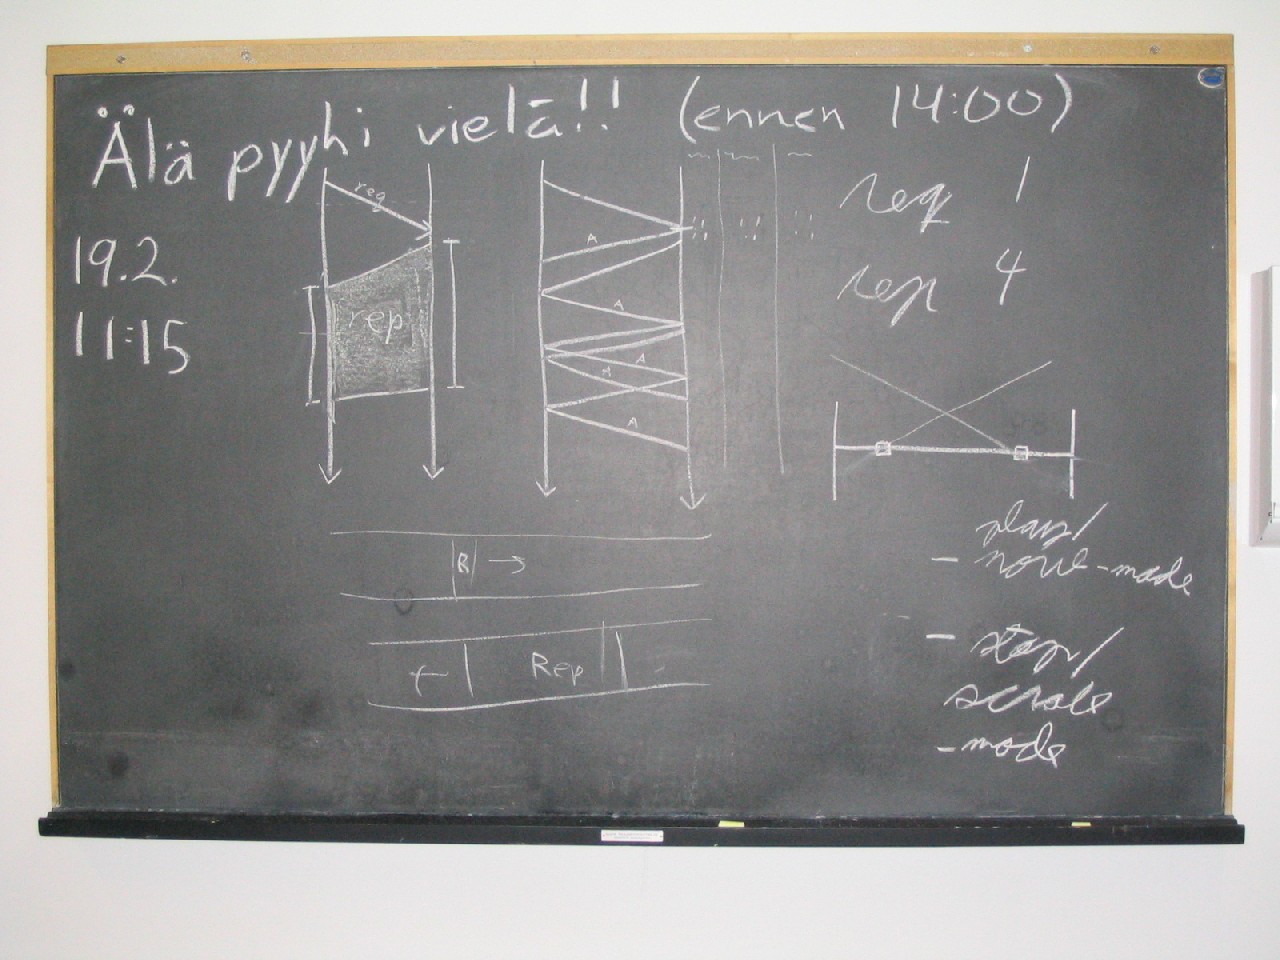 Älä pyyhi vielä!! (ennen 14:00)
19.2.
11:15
req
rep
A
A
A
A
A
req 1
rep 4
play/
- move-mode
- stop/
scrole
-mode
R →
← Rep